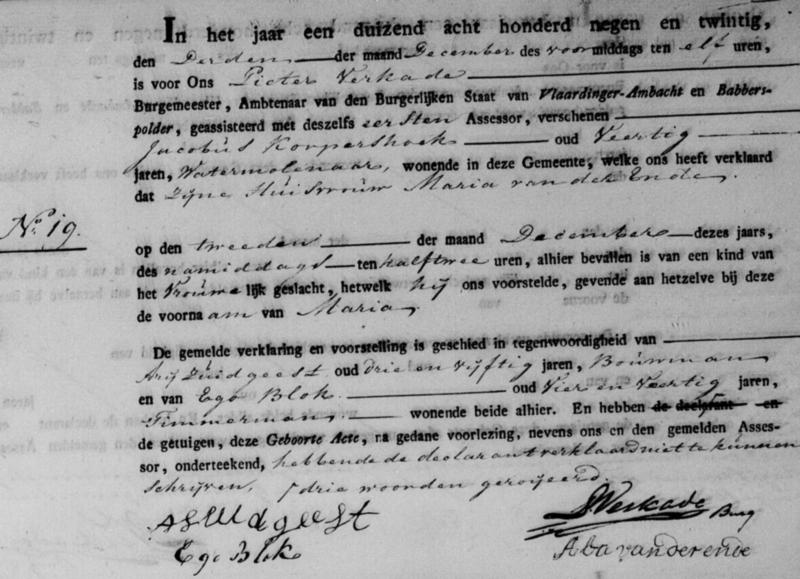 In het jaar een duizend acht honderd negen en twintig,
den Derden der maand December des voormiddags ten elf uren,
is voor Ons Pieter Verkade
Burgemeester, Ambtenaar van den Burgerlijken Staat van Vlaardinger-Ambacht en Babbers-
polder, geassisteerd met deszelfs eersten Assessor, verschenen
Jacobus Korpershoek oud Veertig
jaren, Watermolenaar, wonende in deze Gemeente, welke ons heeft verklaard
dat Zijne Huisvrouw Maria van der Ende.
No. 19.
op den tweeden der maand December dezes jaars,
des namiddags ten half twee uren, alhier bevallen is van een kind van
het Vrouwelijk geslacht, hetwelk hij ons voorstelde, gevende aan hetzelve bij deze
de voornaam van Maria
De gemelde verklaring en voorstelling is geschied in tegenwoordigheid van
Arij Zuidgeest oud drie en vijftig jaren, Bouwman
en van Ego Blok oud Vier en Veertig jaren,
Timmerman, wonende beide alhier. En hebben de declarant en
de getuigen, deze Geboorte Acte, na gedane voorlezing, nevens ons en den gemelden Asses-
sor, onderteekend, hebbende de declarant verklaard niet te kunnen
schrijven, drie woorden geroijeerd.
PVerkade Burg
Ego Blok
A van der ende